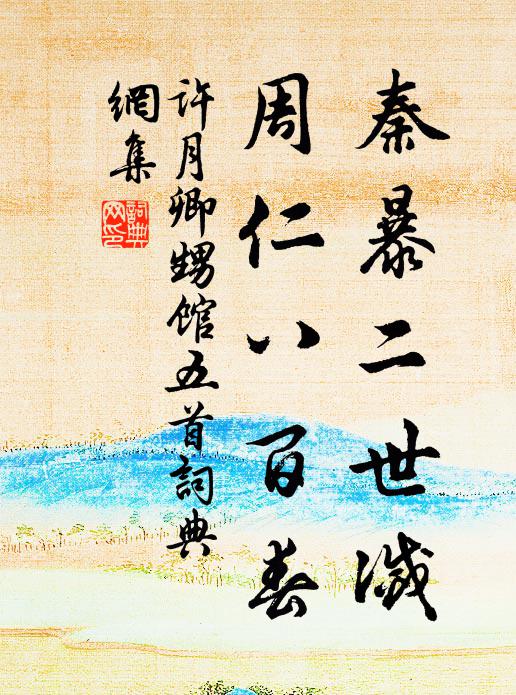 秦暴二世滅
周仁八百春
許月卿甥館五首詞典
網集
詞典
網印